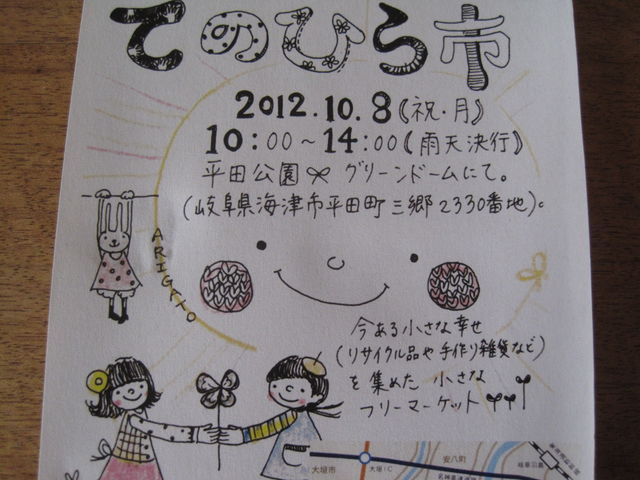 てのひら市
2012.10.8《祝・月》
10:00～14:00《雨天決行》
平田公園 グリーンドームにて。
(岐阜県海津市平田町三郷2330番地)。
ARIGATO
今ある小さな幸せ
(リサイクル品や手作り雑貨など)
を集めた 小さな
フリーマーケット
大垣市
大垣IC
安八町
岐阜羽島